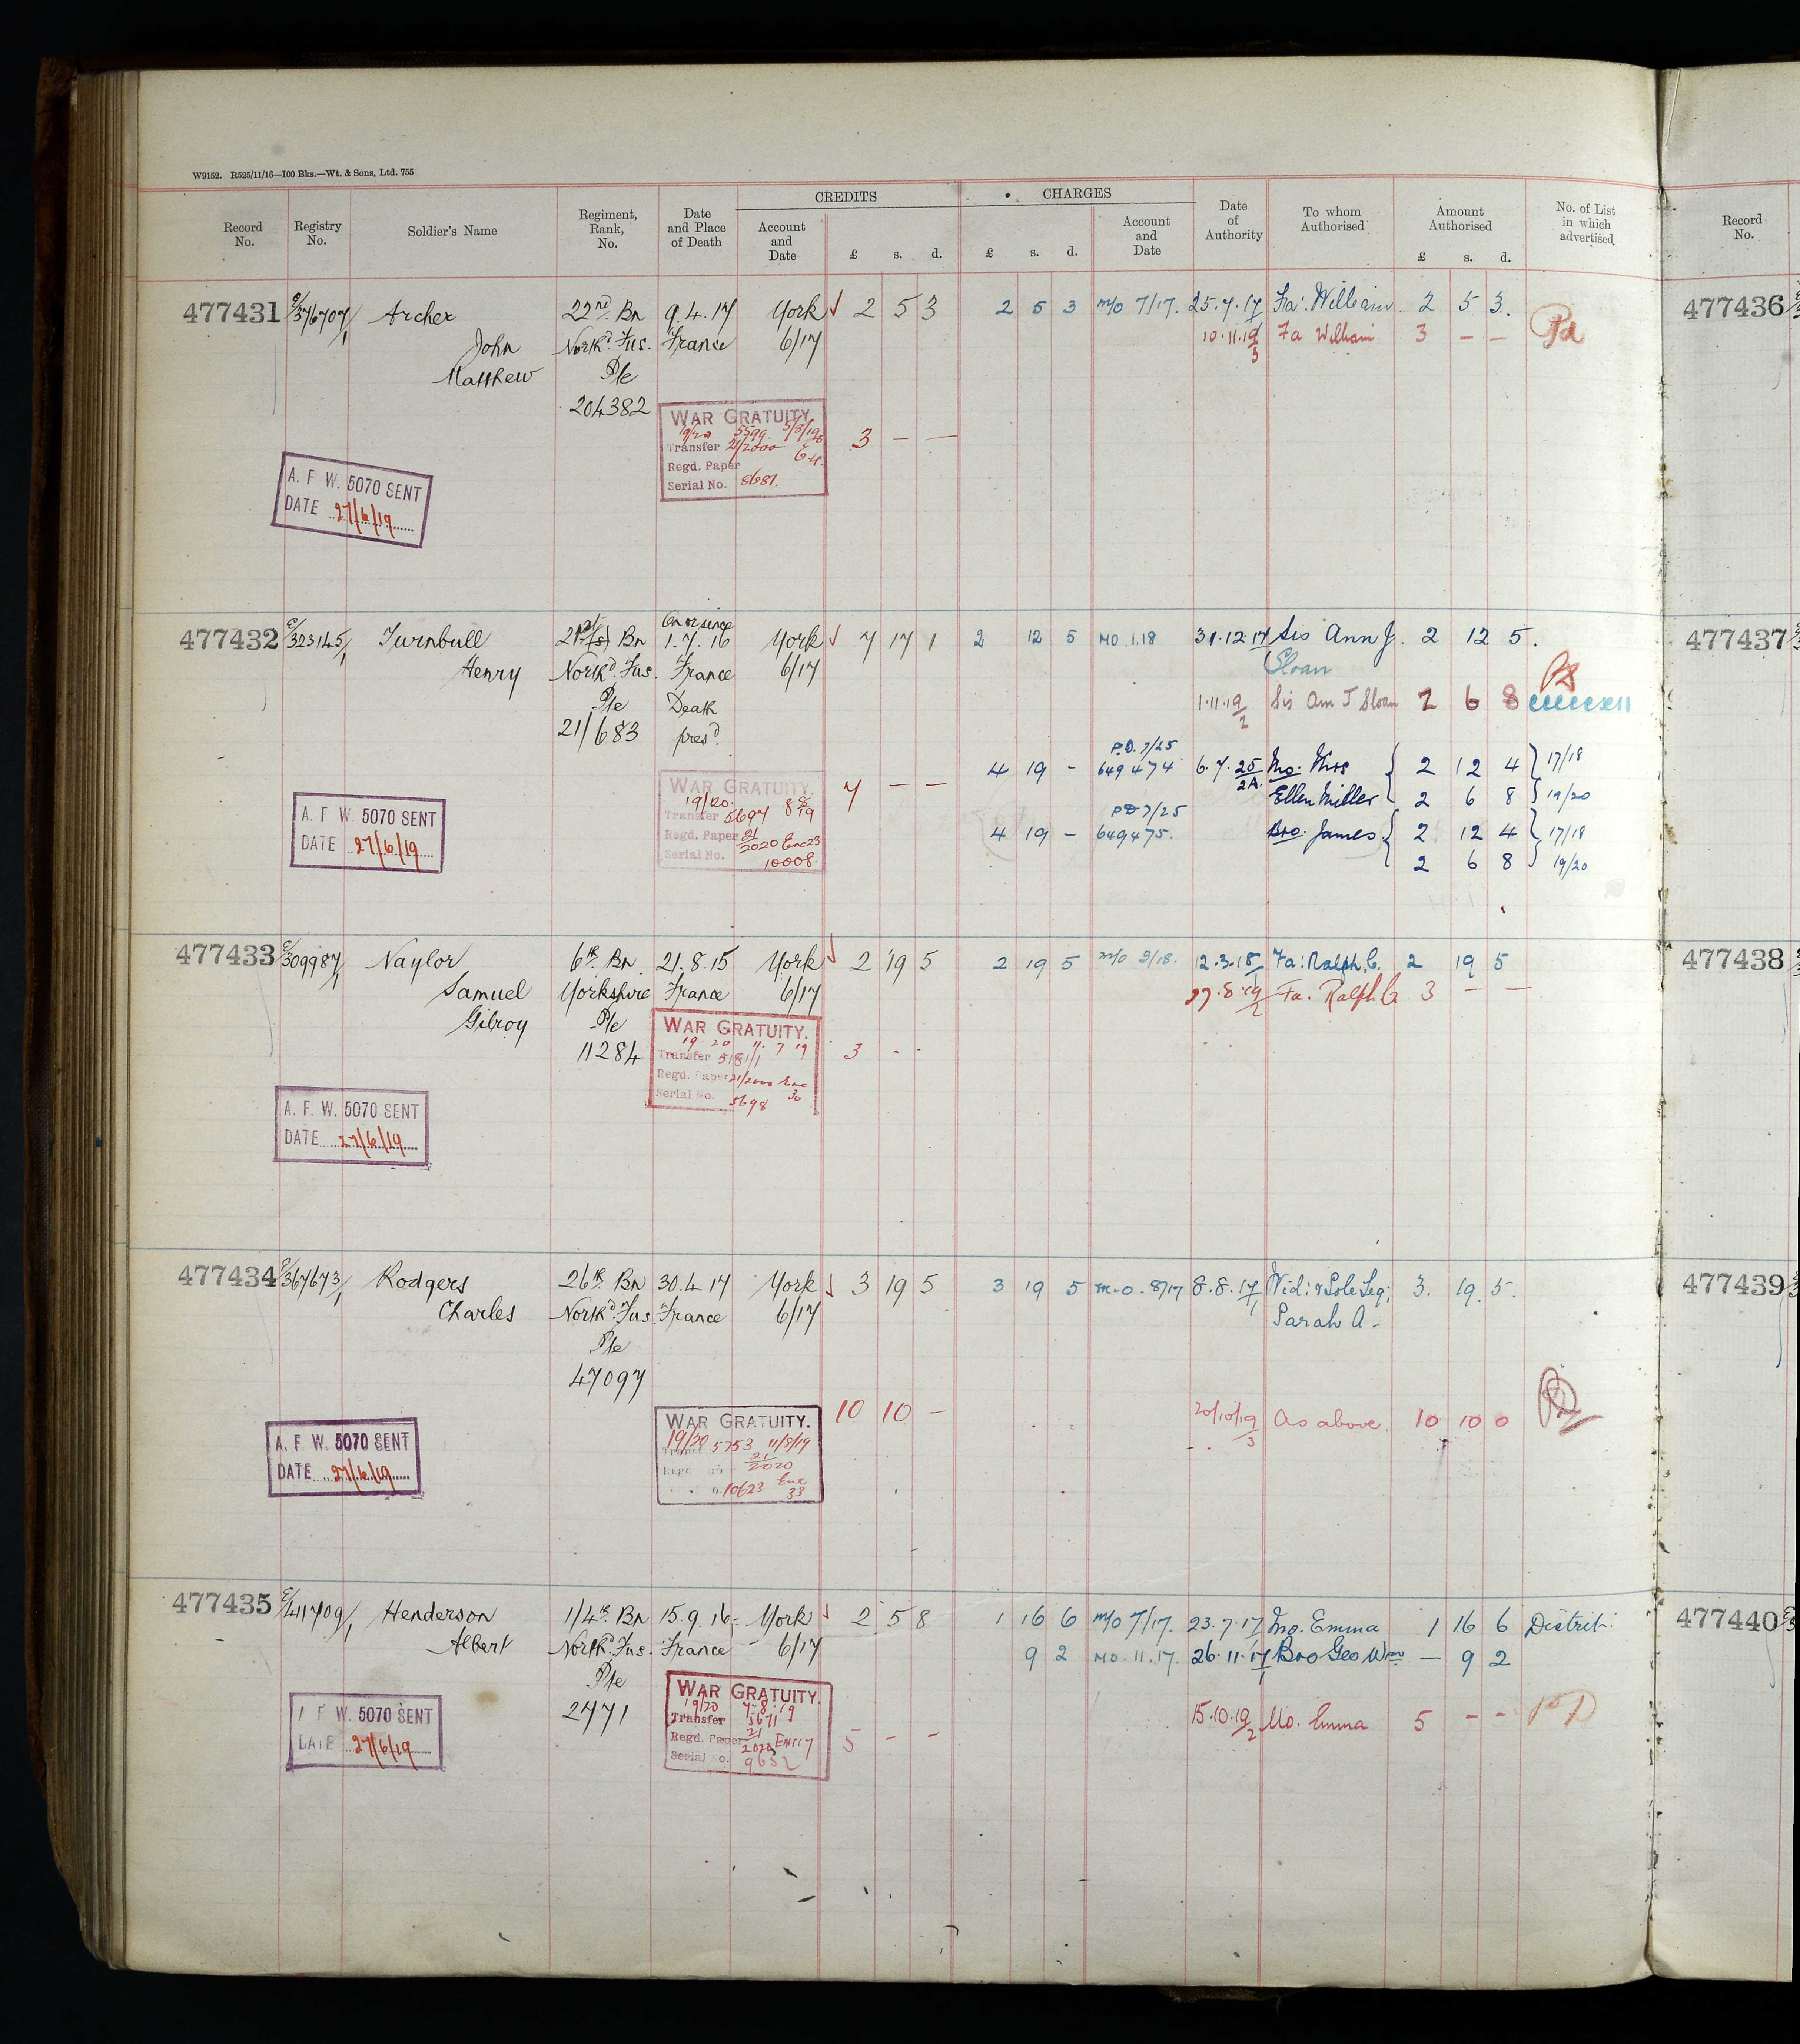 W9152. R525/11/16—100 Bks.—Wt. & Sons, Ltd. 755
CREDITS CHARGES
Record No. Registry No. Soldier's Name Regiment, Rank, No. Date and Place of Death Account and Date £ s. d. £ s. d. Account and Date Date of Authority To whom Authorised Amount Authorised £ s. d. No. of List in which advertised
Record No.
477431 E/376707/1 Archer 22nd Bn 9.4.17 York 2 5 3 2 5 3 M/O 7/17. 25.7.17 Fa: William 2 5 3.
John North'd Fus. France 6/17 10.11.19/3 Fa William 3 — — Pd
Matthew Pte
204382
WAR GRATUITY.
19/20 5599 5/8/19
Transfer 21/2000
Regd. Paper
Serial No. 8681.
3 — —
A. F. W. 5070 SENT
DATE 27/6/19
477432 E/323145/1 Turnbull 21st Bn On or since 1.7.16 York 7 17 1 2 12 5 MO 1.18 31.12.17 Sis Ann J. 2 12 5.
Henry North'd Fus. France 6/17 Sloan
Pte Death 1.11.19/2 Sis Ann J Sloan 2 6 8
21/683 pres'd.
P.D. 7/25
4 19 - 649474 6.7.25/2A. Mo. Mrs 2 12 4 17/18
Ellen Miller 2 6 8 19/20
PD 7/25
4 19 - 649475. Bro. James 2 12 4 17/18
2 6 8 19/20
WAR GRATUITY.
19/20.
Transfer 5697 8/8/19
Regd. Paper 21/2020 Enc 23
Serial No. 10008.
7 — —
A. F. W. 5070 SENT
DATE 27/6/19
477433 E/309987/1 Naylor 6th Bn 21.8.15 York 2 19 5 2 19 5 M/O 3/18. 12.3.18 Fa: Ralph G. 2 19 5
Samuel Yorkshire France 6/17 27.8.19/2 Fa. Ralph G 3 — —
Gilroy Pte
11284
WAR GRATUITY.
19-20 11 7 19
Transfer 5181/1
Regd. Paper 21/2000 Enc 30
Serial No. 5698
3 - -
A. F. W. 5070 SENT
DATE 27/6/19
477434 E/367673/1 Rodgers 26th Bn 30.4.17 York 3 19 5 3 19 5 M.O. 8/17 8.8.17/1 Wid: & Sole Leg: 3. 19. 5.
Charles North'd Fus. France 6/17 Sarah A -
Pte
47097
WAR GRATUITY.
19/20 5753 11/8/19
21/2020
10623 Enc 33
10 10 - 20/10/19/3 As above. 10 10 0
A. F. W. 5070 SENT
DATE 27/6/19
477435 E/411709/1 Henderson 1/4th Bn 15.9.16 York 2 5 8 1 16 6 M/O 7/17. 23.7.17 Mo. Emma 1 16 6 Distrib:
Albert North'd Fus. France 6/17 9 2 MO. 11.17. 26.11.17/1 Bro Geo Wm — 9 2
Pte
2771
WAR GRATUITY.
19/20 7.8.19
Transfer 5671
Regd. Paper 21/2020 Enc 17
Serial No. 9652
5 — - 15.10.19/2 Mo. Emma 5 - - PD
A. F. W. 5070 SENT
DATE 27/6/19
477436
477437
477438
477439
477440